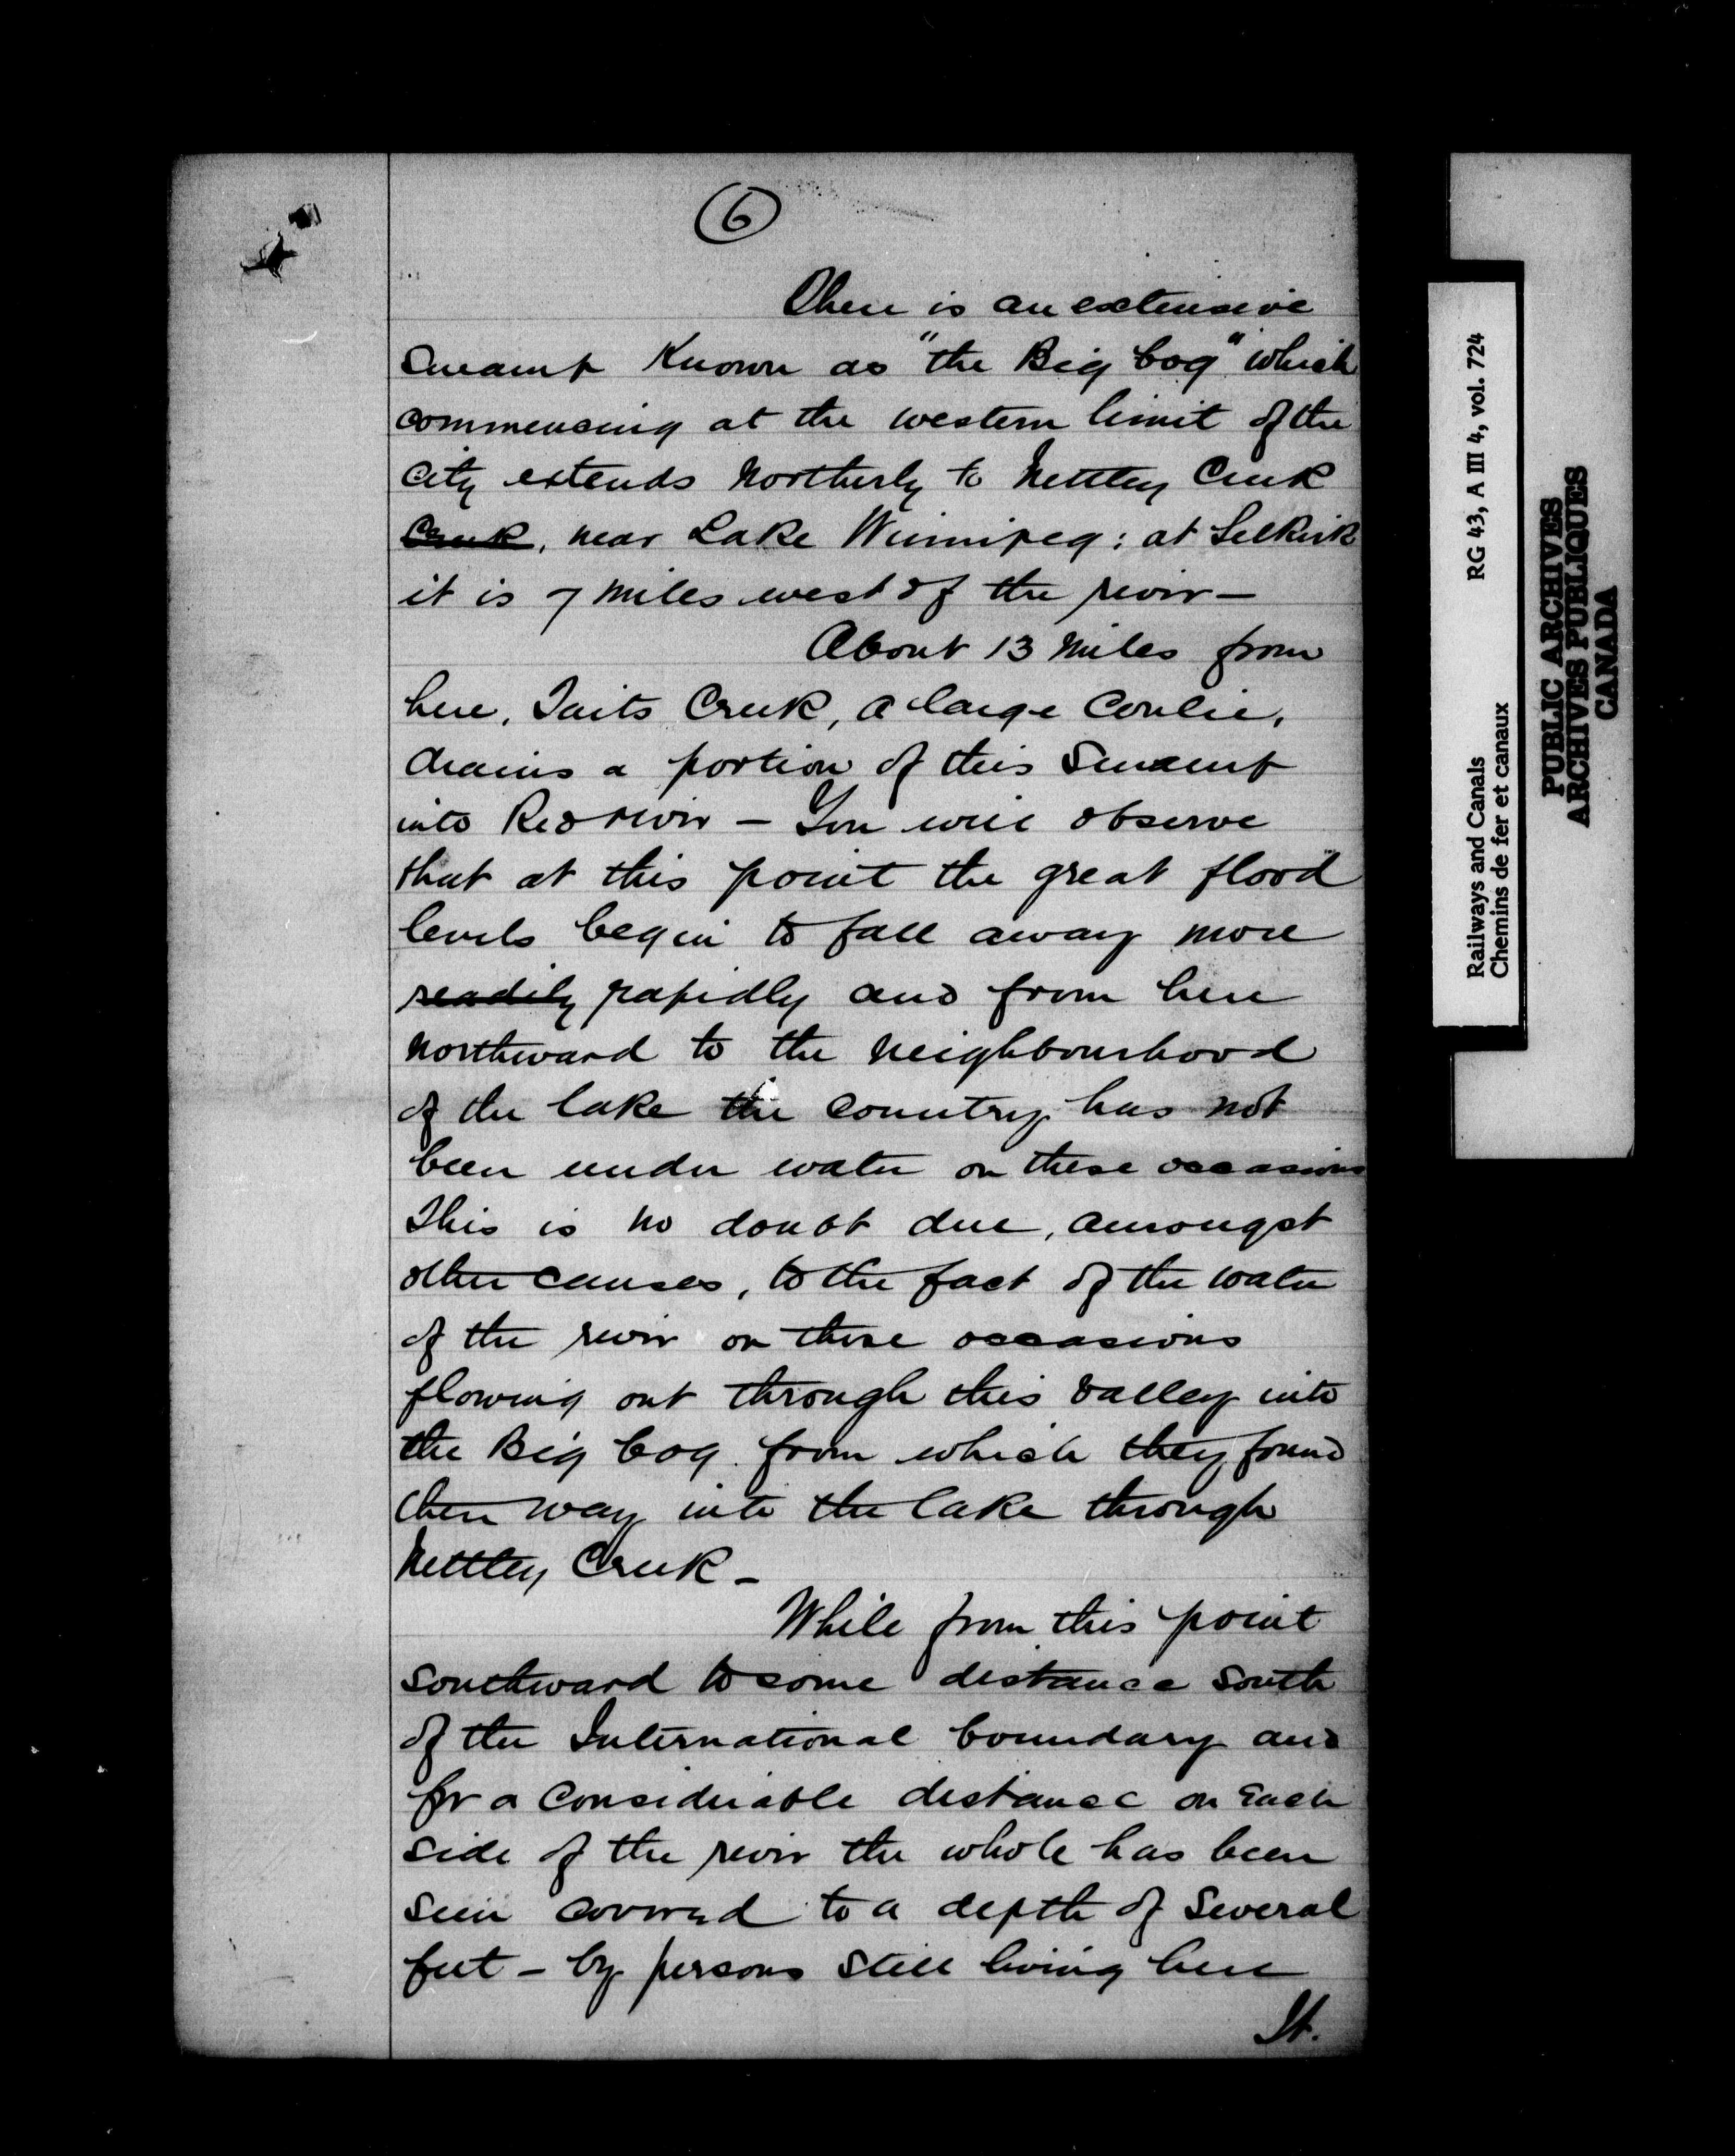 6
There is an extensive
swamp Known as "the Big bog" which
commencing at the western limit of the
City extends Northerly to Nettley Creek
Creek, near Lake Winnipeg: at Selkirk
it is 7 Miles west of the river –
About 13 Miles from
here, Taits Creek, a large Coulie,
drains a portion of this Swamp
into Red River – You will observe
that at this point the great flood
levels begin to fall away more
readily rapidly and from here
Northward to the Neighbourhood
of the lake the Country has not
been under water on these occasions
This is no doubt due, amongst
other causes, to the fact of the water
of the river on these occasions
flowing out through this valley into
the Big bog from which they found
their way into the lake through
Nettley Creek –
While from this point
southward to some distance South
of the International boundary and
for a Considerable distance on Each
side of the river the whole has been
seen covered to a depth of Several
feet – by persons still living here
It.
Railways and Canals RG 43, A III 4, vol. 724
Chemins de fer et canaux
PUBLIC ARCHIVES
ARCHIVES PUBLIQUES
CANADA